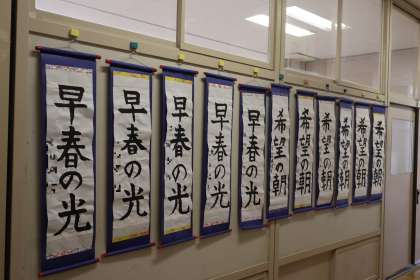 早春の光
早春の光
早春の光
早春の光
早春の光
希望の朝
希望の朝
希望の朝
希望の朝
希望の朝
希望の朝